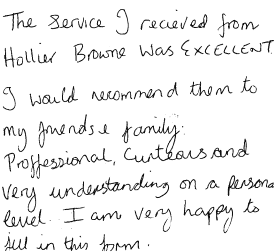 The Service I recieved from
Hollier Browne was EXCELLENT.
I would recommend them to
my friends & family.
Proffessional, Curteous and
very understanding on a persona
level. I am very happy to
fill in this form.